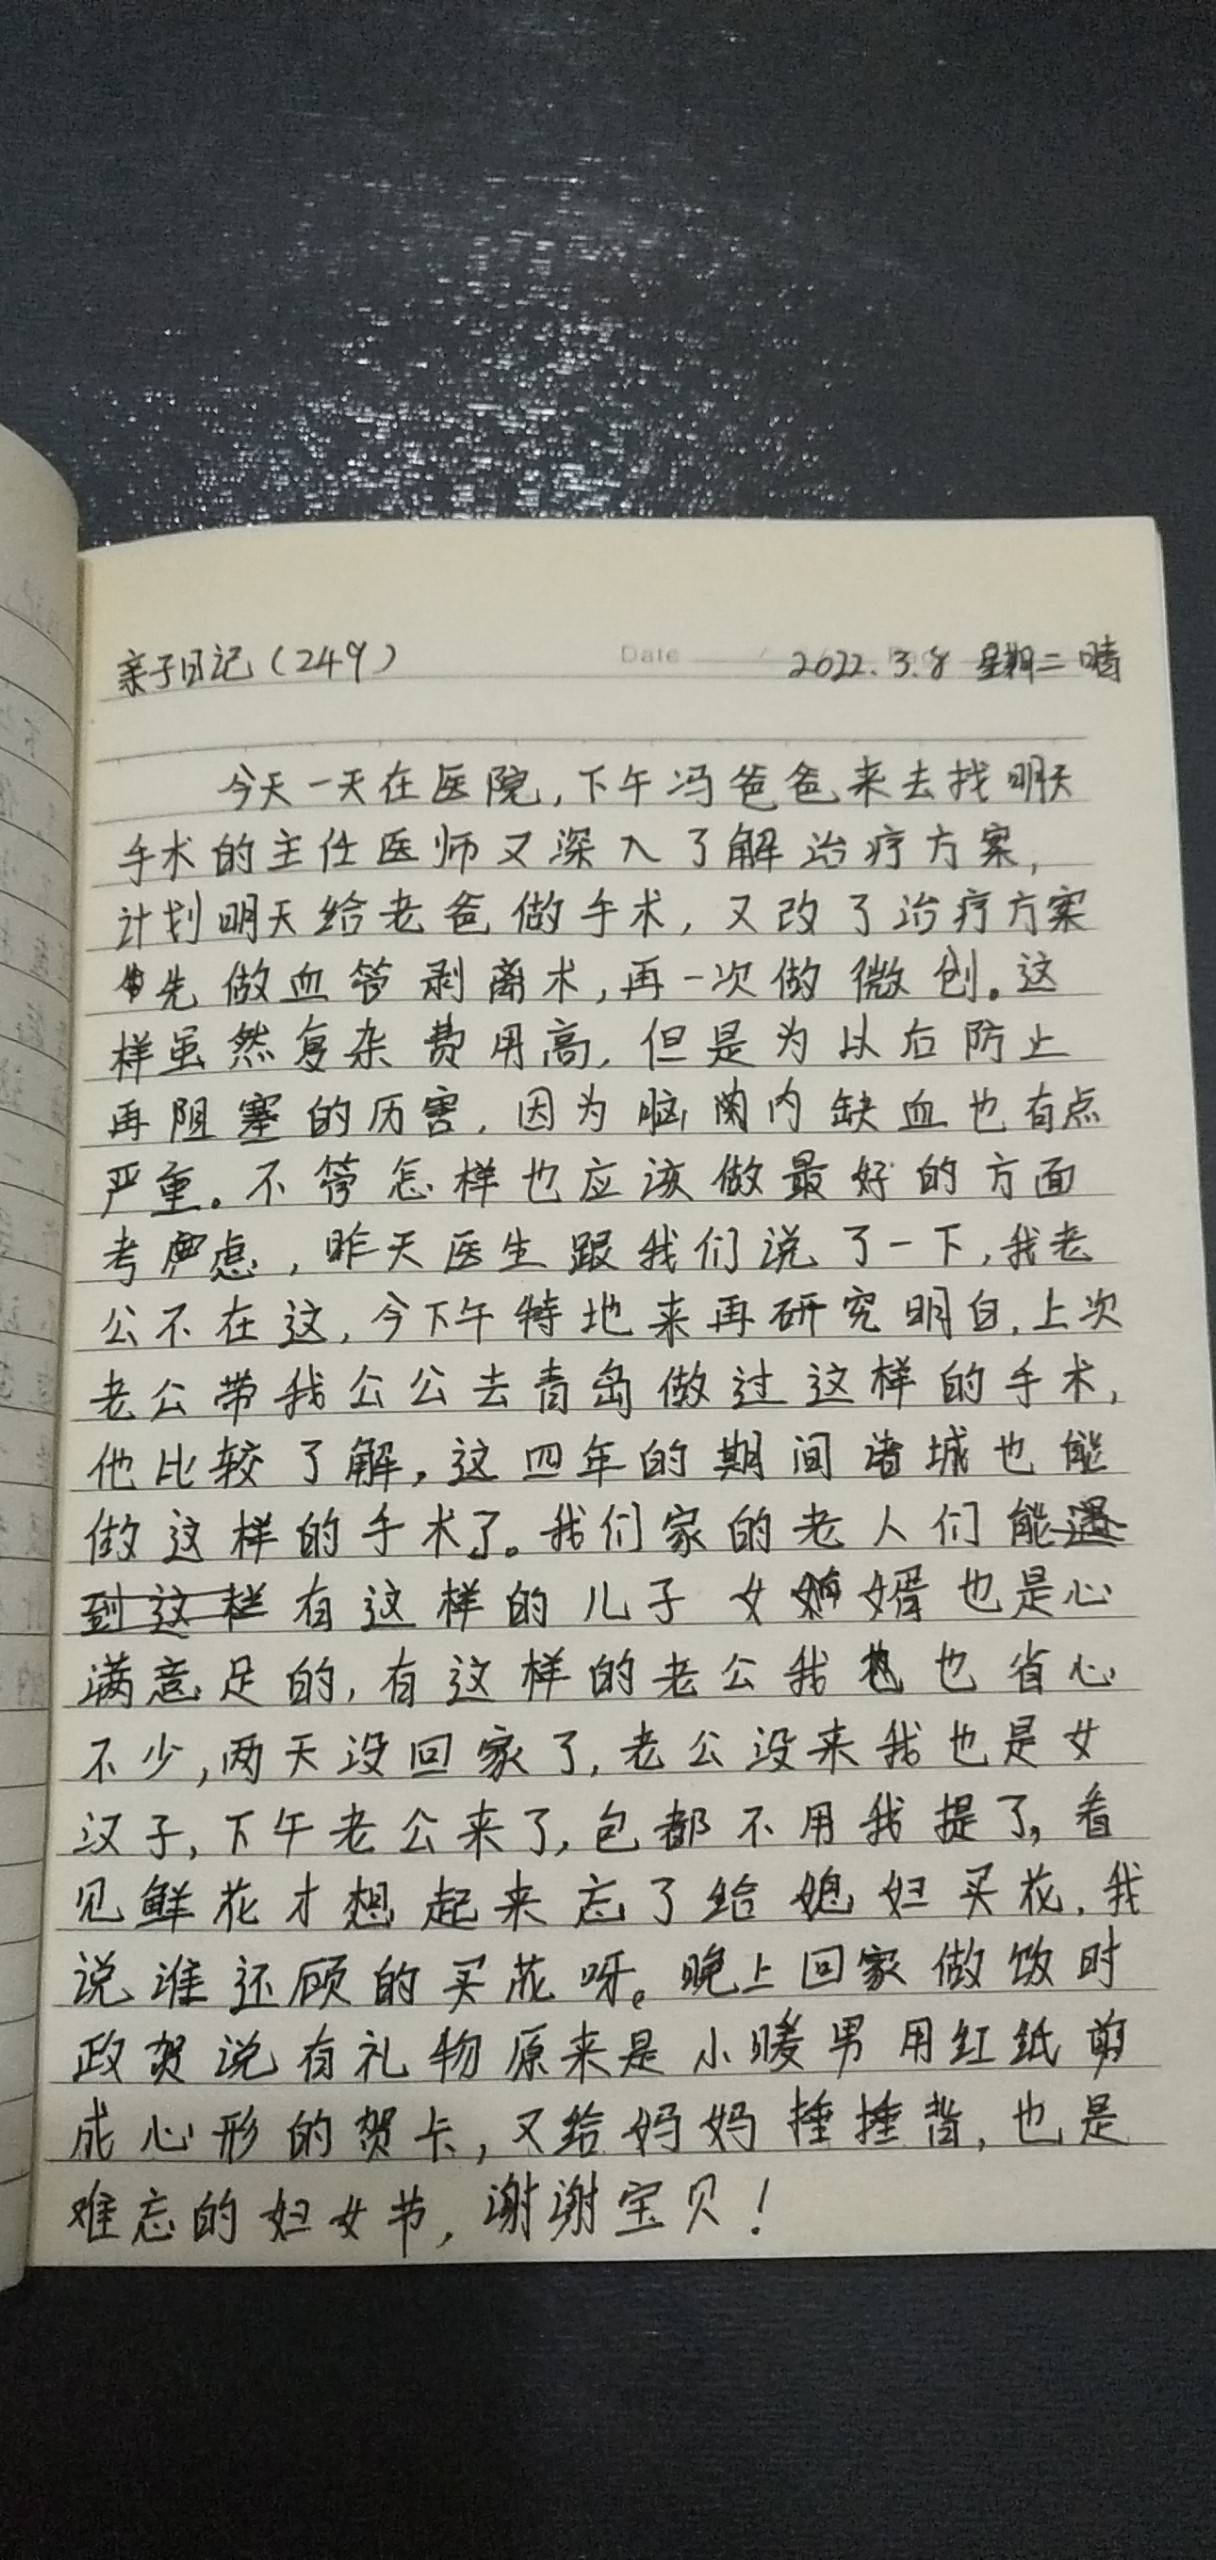 亲子日记(249) Date 2022.3.8 星期二 晴
今天一天在医院,下午冯爸爸来去找明天
手术的主任医师又深入了解治疗方案,
计划明天给老爸做手术,又改了治疗方案
先做血管剥离术,再一次做微创。这
样虽然复杂费用高,但是为以后防止
再阻塞的历害,因为脑内缺血也有点
严重。不管怎样也应该做最好的方面
考虑,昨天医生跟我们说了一下,我老
公不在这,今下午特地来再研究明白,上次
老公带我公公去青岛做过这样的手术,
他比较了解,这四年的期间诸城也能
做这样的手术了。我们家的老人们能遇
到这样有这样的儿子女婿也是心
满意足的,有这样的老公我也省心
不少,两天没回家了,老公没来我也是女
汉子,下午老公来了,包都不用我提了,看
见鲜花才想起来忘了给媳妇买花,我
说谁还顾的买花呀。晚上回家做饭时
政贺说有礼物原来是小暖男用红纸剪
成心形的贺卡,又给妈妈捶捶背,也是
难忘的妇女节,谢谢宝贝!